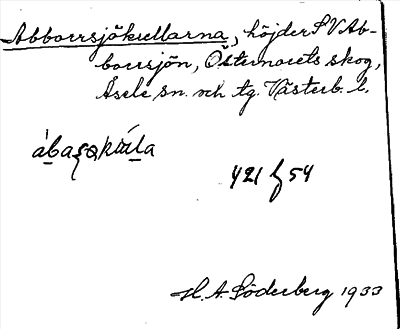 Abborrsjökullarna, höjder S V Ab-
borrsjön, Östernorets skog,
Åsele sn. och tg. Västerb. l.
421 54
H. A. Söderberg 1933